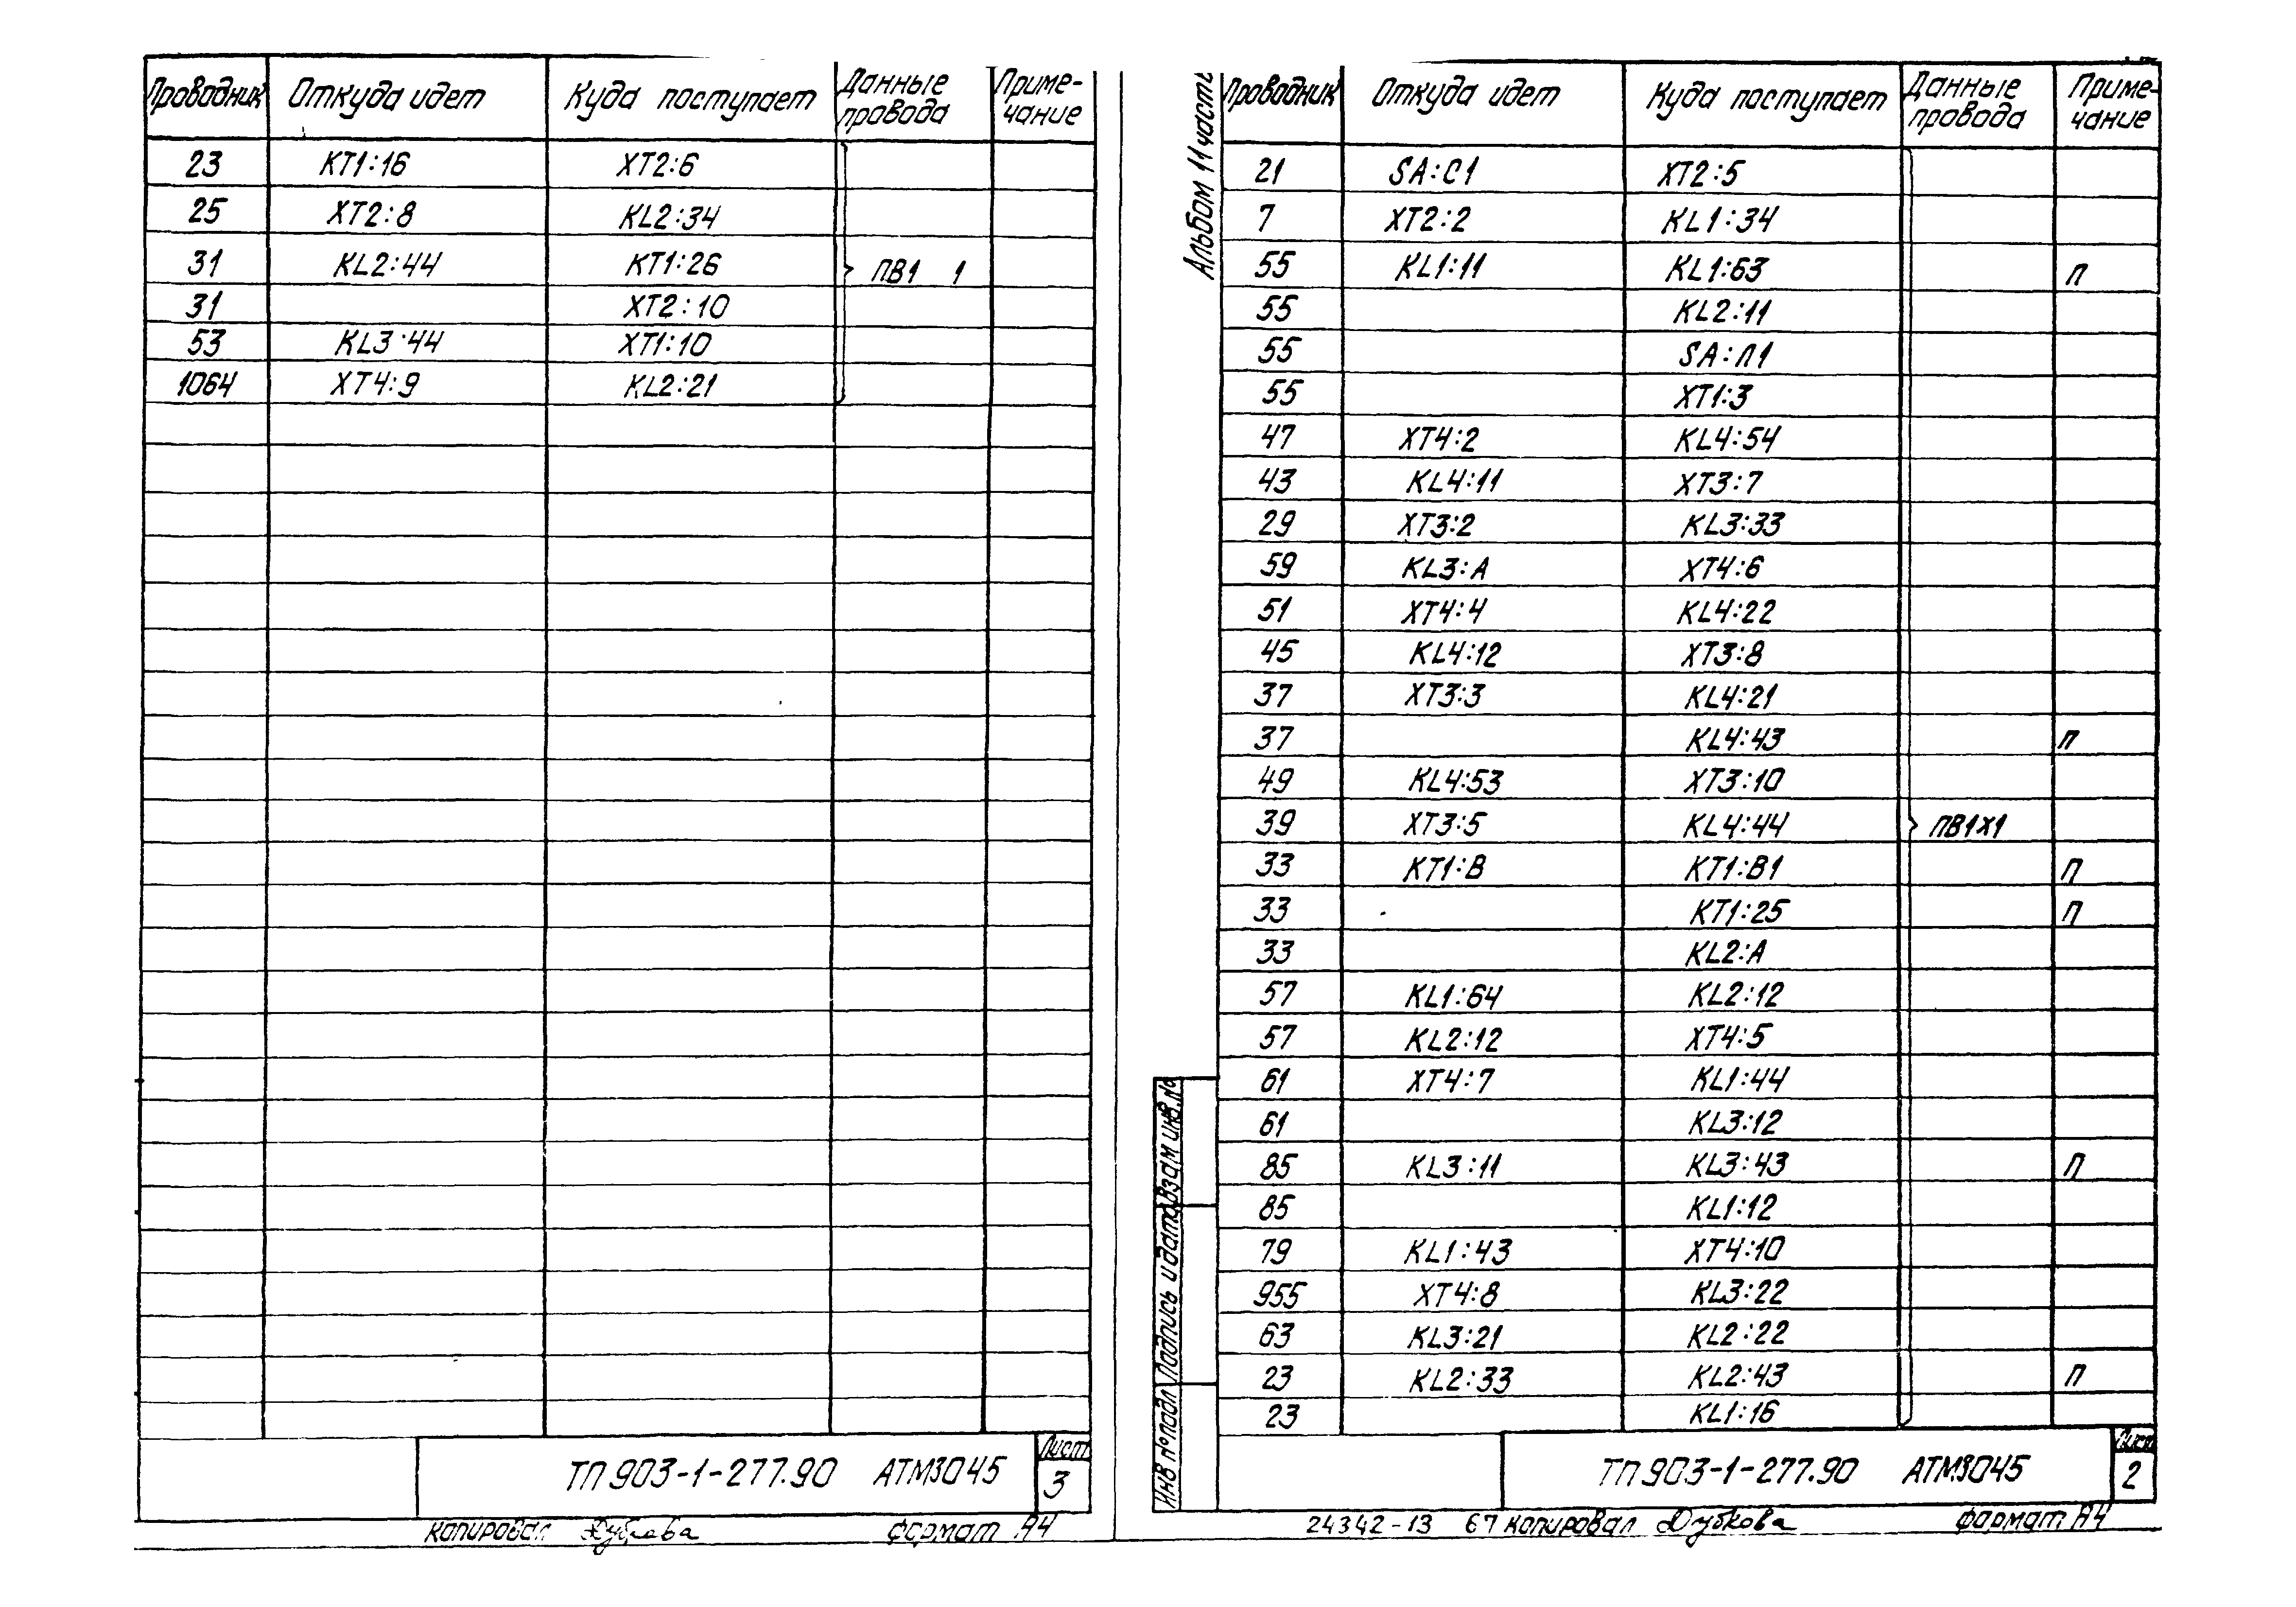 Проводник Откуда идет Куда поступает Данные провода Приме-чание
23 KT1:16 XT2:6
25 XT2:8 KL2:34
31 KL2:44 KT1:26 ПВ1 1
31 XT2:10
53 KL3:44 XT1:10
1064 XT4:9 KL2:21
ТП 903-1-277.90 АТМ3045 Лист 3
копировал Дубкова формат А4
Альбом 11 часть
Проводник Откуда идет Куда поступает Данные провода Приме-чание
21 SA:C1 XT2:5
7 XT2:2 KL1:34
55 KL1:11 KL1:63 П
55 KL2:11
55 SA:Л1
55 XT1:3
47 XT4:2 KL4:54
43 KL4:11 XT3:7
29 XT3:2 KL3:33
59 KL3:A XT4:6
51 XT4:4 KL4:22
45 KL4:12 XT3:8
37 XT3:3 KL4:21
37 KL4:43 П
49 KL4:53 XT3:10
39 XT3:5 KL4:44 ПВ1Х1
33 KT1:B KT1:B1 П
33 KT1:25 П
33 KL2:A
57 KL1:64 KL2:12
57 KL2:12 XT4:5
61 XT4:7 KL1:44
61 KL3:12
85 KL3:11 KL3:43 П
85 KL1:12
79 KL1:43 XT4:10
955 XT4:8 KL3:22
63 KL3:21 KL2:22
23 KL2:33 KL2:43 П
23 KL1:16
Взам инв.№
Подпись и дата
Инв № подл
ТП 903-1-277.90 АТМ3045 Лист 2
24342-13 67 копировал Дубкова формат А4